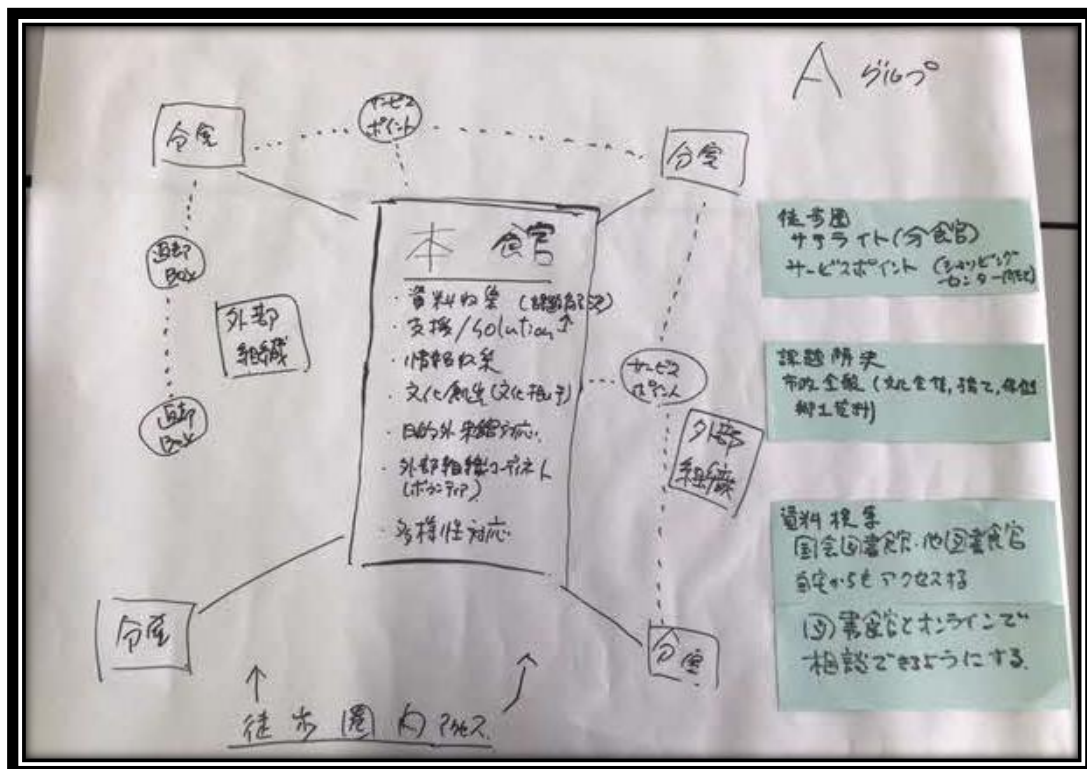 A グループ
分室
サービス
ポイント
分室
返却
Box
外部
組織
返却
Box
本 館
・資料収集 (課題解決)
・支援/Solution
・情報収集
・文化創生(文化拠点)
・目的外来館対応
・外部組織コーディネート
(ボランティア)
・多様性対応
サービス
ポイント
外部
組織
分室
分室
徒歩圏内アクセス
徒歩圏
サテライト(分館)
サービスポイント (ショッピング
センター内など)
課題解決
市政全般 (文化
郷土資料)
資料検索
国会図書館、他図書館
自宅からもアクセスする
図書館とオンラインで
相談できるようにする。